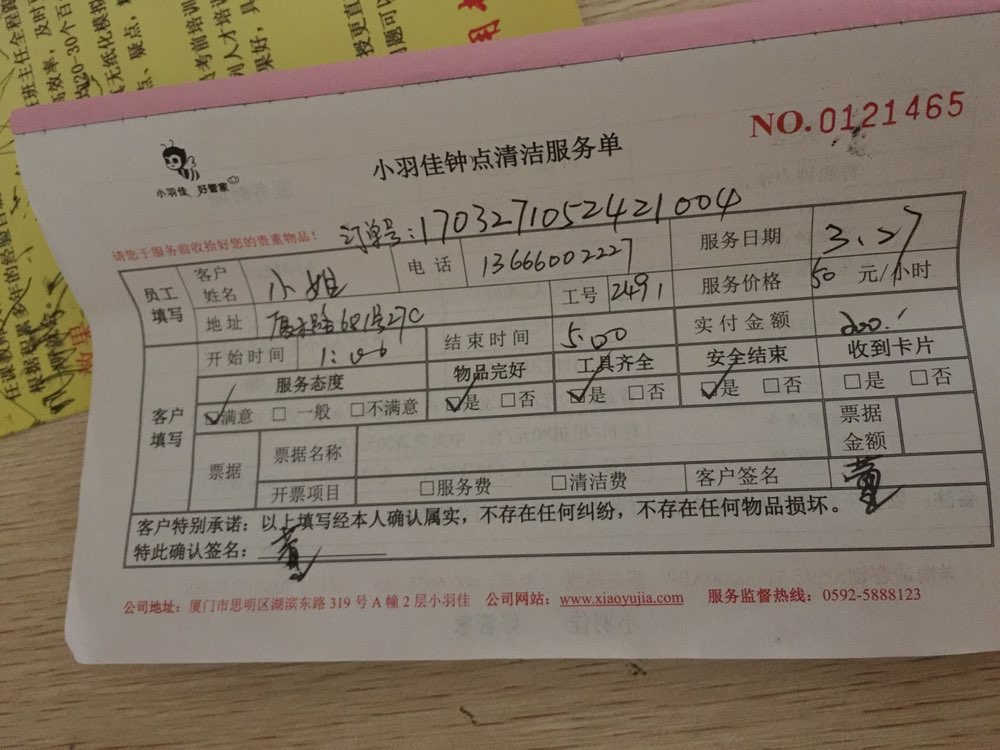 NO.0121465
小羽佳 好管家
小羽佳钟点清洁服务单
请您于服务前收拾好您的贵重物品！ 订单号：1703271052421004
员工填写 客户姓名 小姐 电话 13666002227 服务日期 3.27
地址 681号27C 工号 2491 服务价格 50 元/小时
客户填写 开始时间 1:00 结束时间 5:00 实付金额 200.
服务态度 物品完好 工具齐全 安全结束 收到卡片
☑满意 □ 一般 □不满意 ☑是 □否 ☑是 □否 ☑是 □否 □是 □否
票据 票据名称 票据金额
开票项目 □服务费 □清洁费 客户签名
客户特别承诺：以上填写经本人确认属实，不存在任何纠纷，不存在任何物品损坏。
特此确认签名：
公司地址：厦门市思明区湖滨东路 319 号 A 幢 2 层小羽佳 公司网站：www.xiaoyujia.com 服务监督热线：0592-5888123